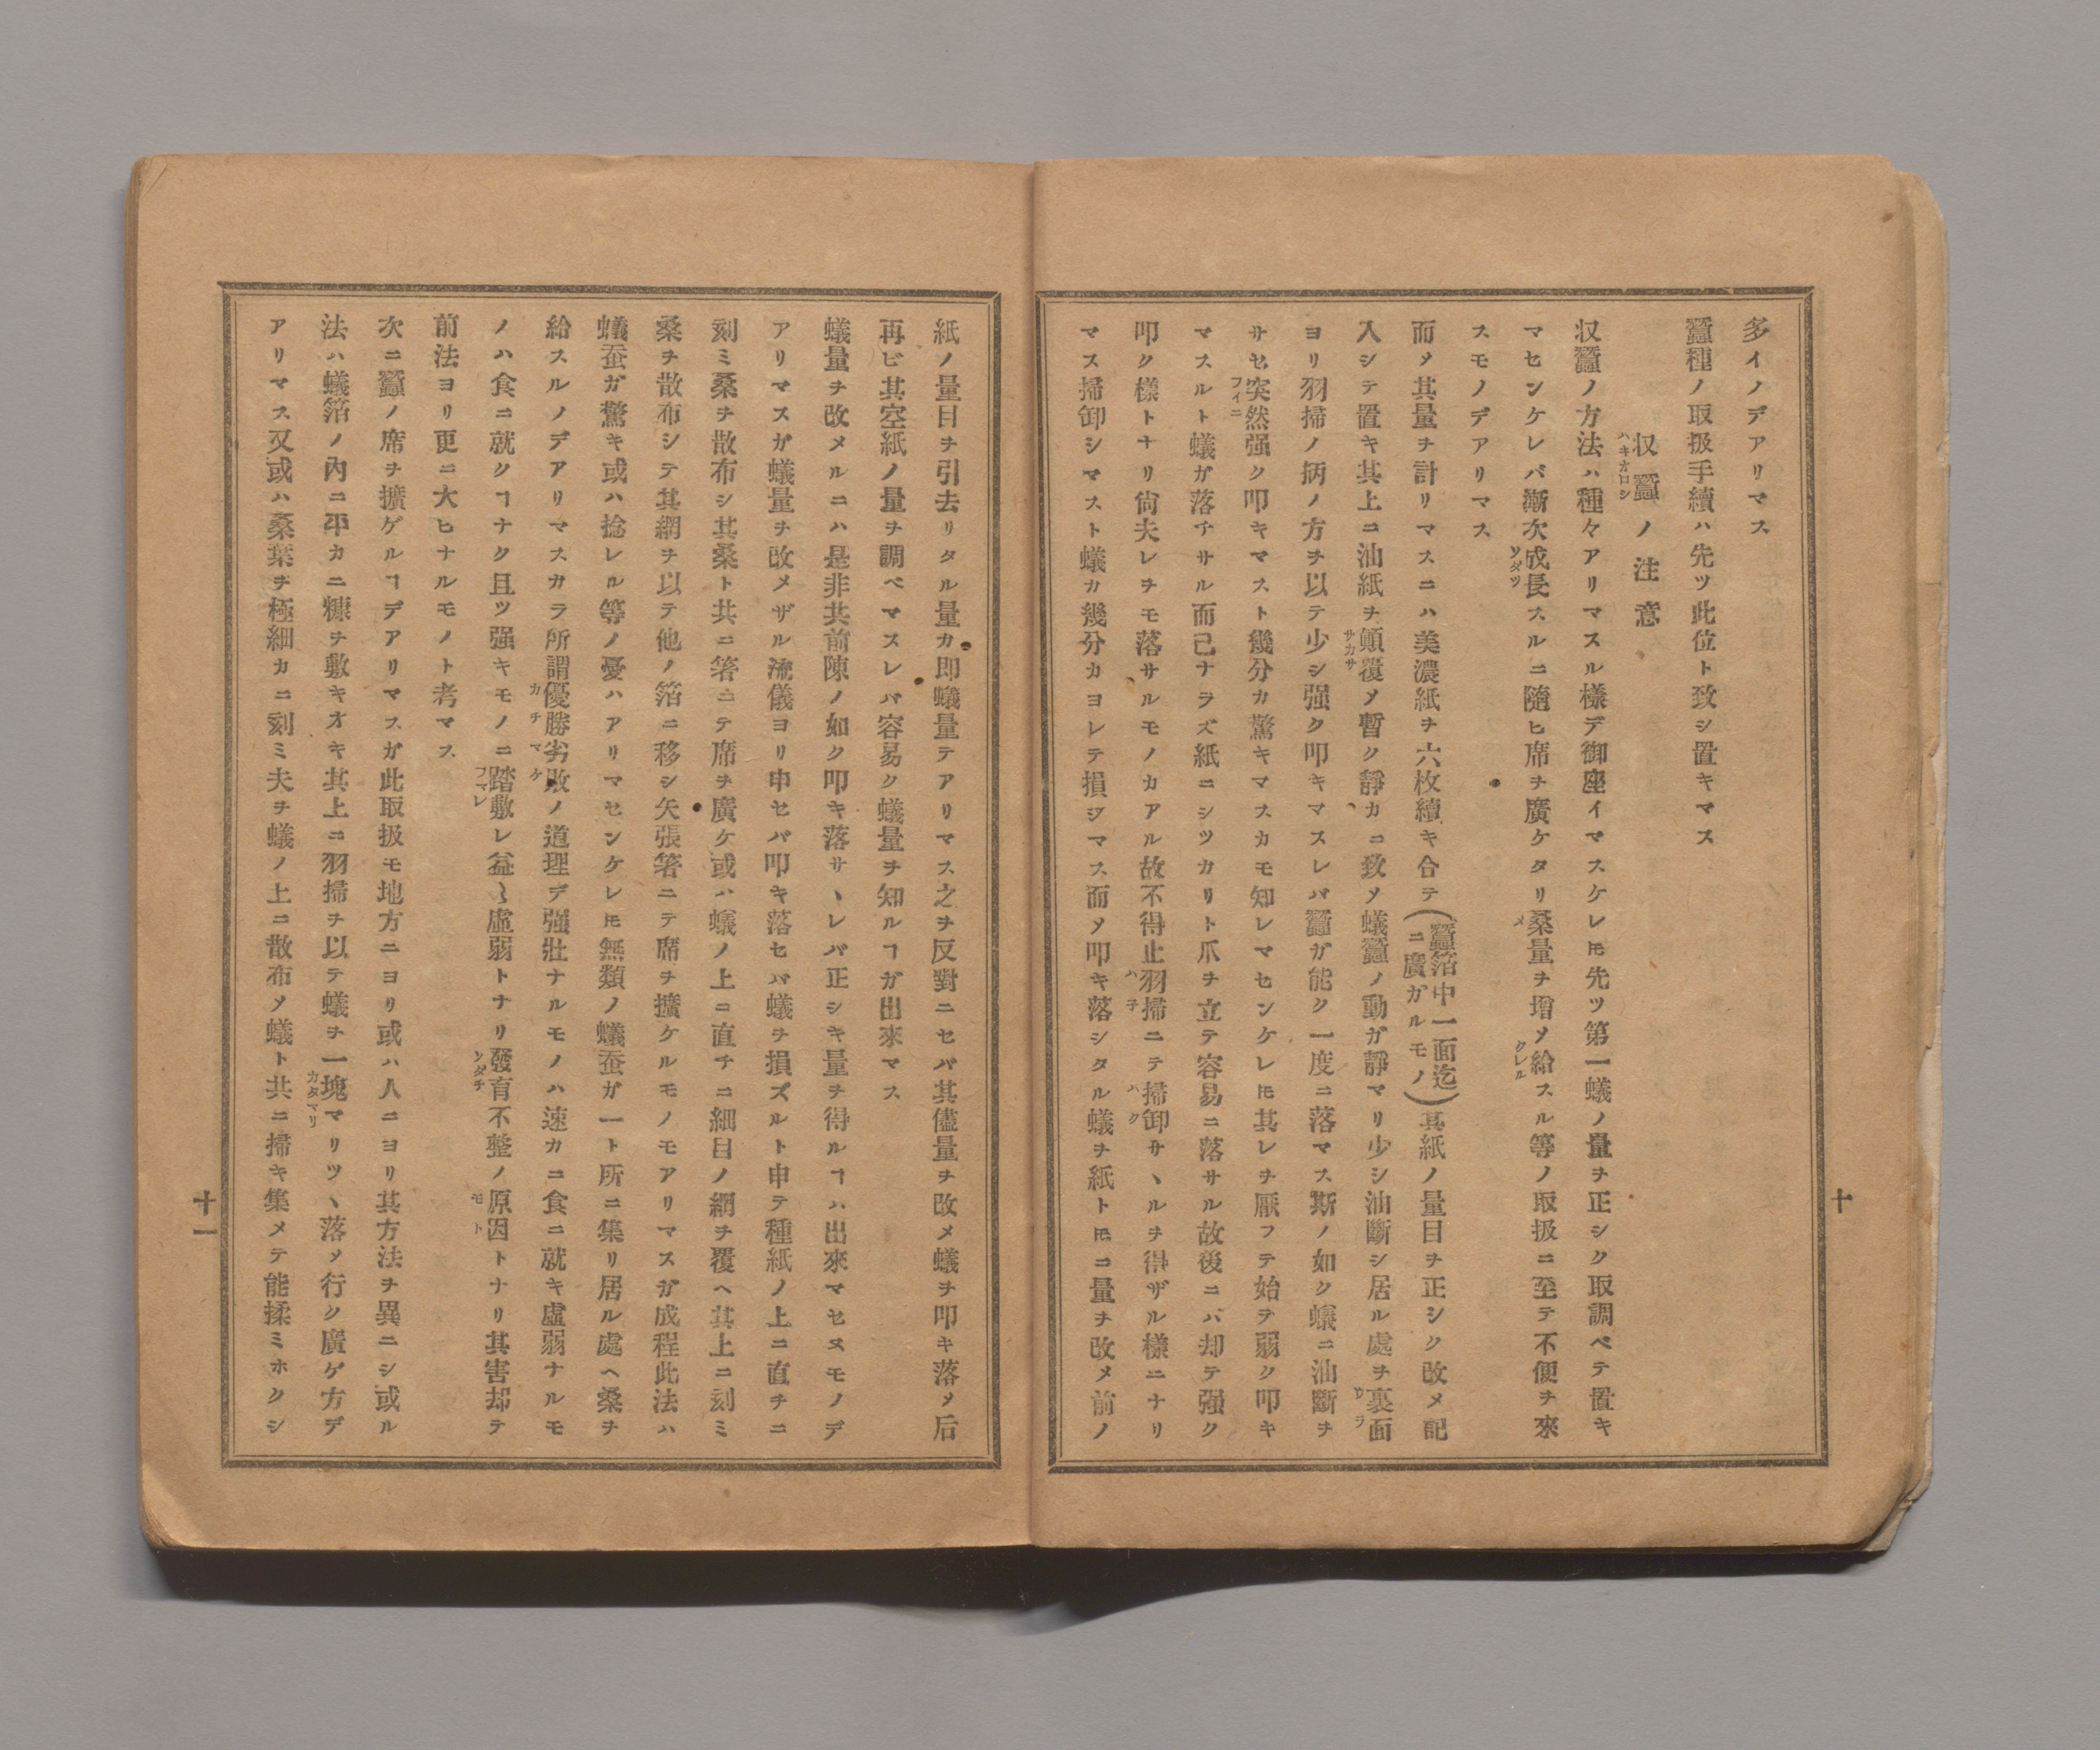 多イノデアリマス
蠶種ノ取扱手續ハ先ツ此位ト致シ置キマス
収蠶ノ注意
ハキオロシ
収蠶ノ方法ハ種々アリマスル樣デ御座イマスケレ𪜈先ツ第一蟻ノ量ヲ正シク取調ベテ置キ
マセンケレバ漸次成長スルニ隨ヒ席ヲ廣ケタリ桑量ヲ增メ給スル等ノ取扱ニ至テ不便ヲ來
ソダツ
クレル
スモノデアリマス
而メ其量ヲ計リマスニハ美濃紙ヲ六枚續キ合テ(蠶箔中一面迄ニ廣ガルモノ)其紙ノ量目ヲ正シク改メ記
入シテ置キ其上ニ油紙ヲ顚覆メ暫ク靜カニ致メ蟻蠶ノ動ガ靜マリ少シ油斷シ居ル處ヲ裏面
サカサ
ウラ
ヨリ羽掃ノ柄ノ方ヲ以テ少シ强ク叩キマスレバ蠶ガ能ク一度ニ落マス斯ノ如ク蟻ニ油斷ヲ
サセ突然强ク叩キマスト幾分カ驚キマスカモ知レマセンケレ𪜈其レヲ厭フテ始テ弱ク叩キ
フイニ
マスルト蟻ガ落チサル而己ナラズ紙ニシツカリト爪ヲ立テ容易ニ落サル故後ニハ却テ强ク
叩ク樣トナリ尙夫レヲモ落サルモノカアル故不得止羽掃ニテ掃卸サヽルヲ得ザル樣ニナリ
ハテ
ハク
マス掃卸シマスト蟻カ幾分カヨレテ損ジマス而メ叩キ落シタル蟻ヲ紙ト𪜈ニ量ヲ改メ前ノ
十
紙ノ量目ヲ引去リタル量カ即蟻量テアリマス之ヲ反對ニセバ其儘量ヲ改メ蟻ヲ叩キ落メ后
再ビ其空紙ノ量ヲ調ベマスレバ容易ク蟻量ヲ知ルヿガ出來マス
蟻量ヲ改メルニハ是非共前陳ノ如ク叩キ落サヽレバ正シキ量ヲ得ルヿハ出來マセヌモノデ
アリマスガ蟻量ヲ改メザル流儀ヨリ申セバ叩キ落セバ蟻ヲ損ズルト申テ種紙ノ上ニ直チニ
刻ミ桑ヲ散布シ其桑ト共ニ箸ニテ席ヲ廣ケ或ハ蟻ノ上ニ直チニ細目ノ網ヲ覆ヘ其上ニ刻ミ
桑ヲ散布シテ其網ヲ以テ他ノ箔ニ移シ矢張箸ニテ席ヲ擴ケルモノモアリマスガ成程此法ハ
蟻蚕ガ驚キ或ハ捻レル等ノ憂ハアリマセンケレ𪜈無類ノ蟻蚕ガ一ト所ニ集リ居ル處ヘ桑ヲ
給スルノデアリマスカラ所謂優勝劣敗ノ道理デ强壯ナルモノハ速カニ食ニ就キ虛弱ナルモ
カチマケ
ノハ食ニ就クヿナク且ツ强キモノニ踏敷レ益〻虛弱トナリ發育不整ノ原因トナリ其害却テ
フマレ
ソダチ
モト
前法ヨリ更ニ大ヒナルモノト考マス
次ニ蠶ノ席ヲ擴ゲルヿデアリマスガ此取扱モ地方ニヨリ或ハ人ニヨリ其方法ヲ異ニシ或ル
法ハ蟻箔ノ內ニ平カニ糠ヲ敷キオキ其上ニ羽掃ヲ以テ蟻ヲ一塊マリツヽ落メ行ク廣ゲ方デ
カタマリ
アリマス又或ハ桑葉ヲ極細カニ刻ミ夫ヲ蟻ノ上ニ散布メ蟻ト共ニ掃キ集メテ能揉ミホクシ
十一